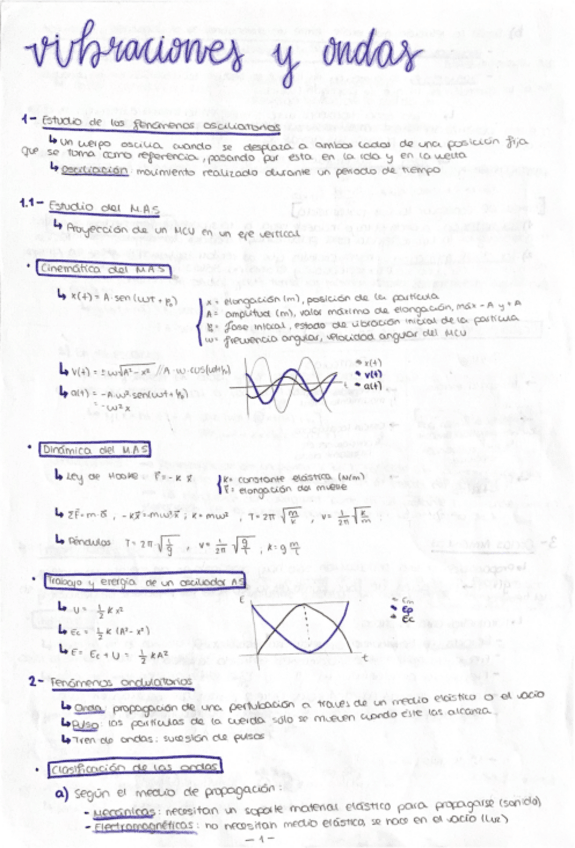 vibraciones y ondas
1- Estudio de los fenómenos oscilatorios
↳ Un cuerpo oscila cuando se desplaza a ambos lados de una posición fija
que se toma como referencia, pasando por esta en la ida y en la vuelta
↳ oscilación: movimiento realizado durante un periodo de tiempo
1.1- Estudio del M.A.S
↳ Proyección de un MCU en un eje vertical.
• Cinemática del MAS
↳ x(t) = A·sen(ωt + φ₀)
x = elongación (m), posición de la partícula
A = amplitud (m), valor máximo de elongación, máx -A y +A
φ₀ = fase inicial, estado de vibración inicial de la partícula
ω = frecuencia angular, velocidad angular del MCU
↳ v(t) = ±ω√A²-x² // A·ω·cos(ωt+φ₀)
↳ a(t) = -A·ω²·sen(ωt + φ₀)
= -ω²x
t
x(t)
v(t)
a(t)
• Dinámica del MAS
↳ Ley de Hooke: F = -k x
k = constante elástica (N/m)
x = elongación del muelle
↳ ΣF = m·a, -kx = -mω²x; k = mω², T = 2π √m/k, ν = 1/2π √k/m
↳ Péndulos T = 2π √l/g, ν = 1/2π √g/l, k = g m/l
• Trabajo y energía de un oscilador AS
↳ U = 1/2 k x²
↳ Ec = 1/2 k (A² - x²)
↳ E = Ec + U = 1/2 kA²
E
t
Em
Ep
Ec
2- Fenómenos ondulatorios
↳ Onda: propagación de una pertubación a través de un medio elástico o el vacío
↳ Pulso: las partículas de la cuerda solo se mueven cuando éste las alcanza.
↳ Tren de ondas: sucesión de pulsos
• Clasificación de las ondas
a) Según el medio de propagación:
- Mecánicas: necesitan un soporte material elástico para propagarse (sonido)
- Electromagnéticas: no necesitan medio elástico, se hace en el vacío (luz)
-1-